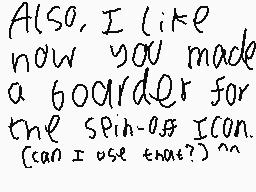 Also, I like
how you made
a boarder for
the spin-off Icon.
(can I use that?) ^^